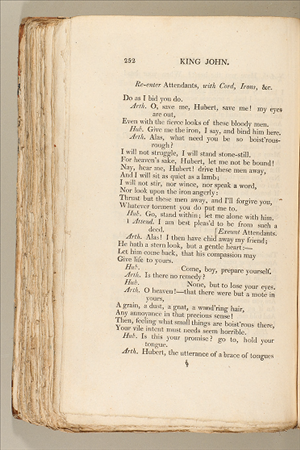 252 KING JOHN.
Re-enter Attendants, with Cord, Irons, &c.
Do as I bid you do.
Arth. O, save me, Hubert, save me! my eyes
are out,
Even with the fierce looks of these bloody men.
Hub. Give me the iron, I say, and bind him here.
Arth. Alas, what need you be so boist'rous-
rough?
I will not struggle, I will stand stone-still.
For heaven's sake, Hubert, let me not be bound!
Nay, hear me, Hubert! drive these men away,
And I will sit as quiet as a lamb;
I will not stir, nor wince, nor speak a word,
Nor look upon the iron angerly:
Thrust but these men away, and I'll forgive you,
Whatever torment you do put me to.
Hub. Go, stand within; let me alone with him.
1 Attend. I am best pleas'd to be from such a
deed. [Exeunt Attendants.
Arth. Alas! I then have chid away my friend;
He hath a stern look, but a gentle heart:—
Let him come back, that his compassion may
Give life to yours.
Hub. Come, boy, prepare yourself.
Arth. Is there no remedy?
Hub. None, but to lose your eyes.
Arth. O heaven!—that there were but a mote in
yours,
A grain, a dust, a gnat, a wand'ring hair,
Any annoyance in that precious sense!
Then, feeling what small things are boist'rous there,
Your vile intent must needs seem horrible.
Hub. Is this your promise? go to, hold your
tongue.
Arth. Hubert, the utterance of a brace of tongues